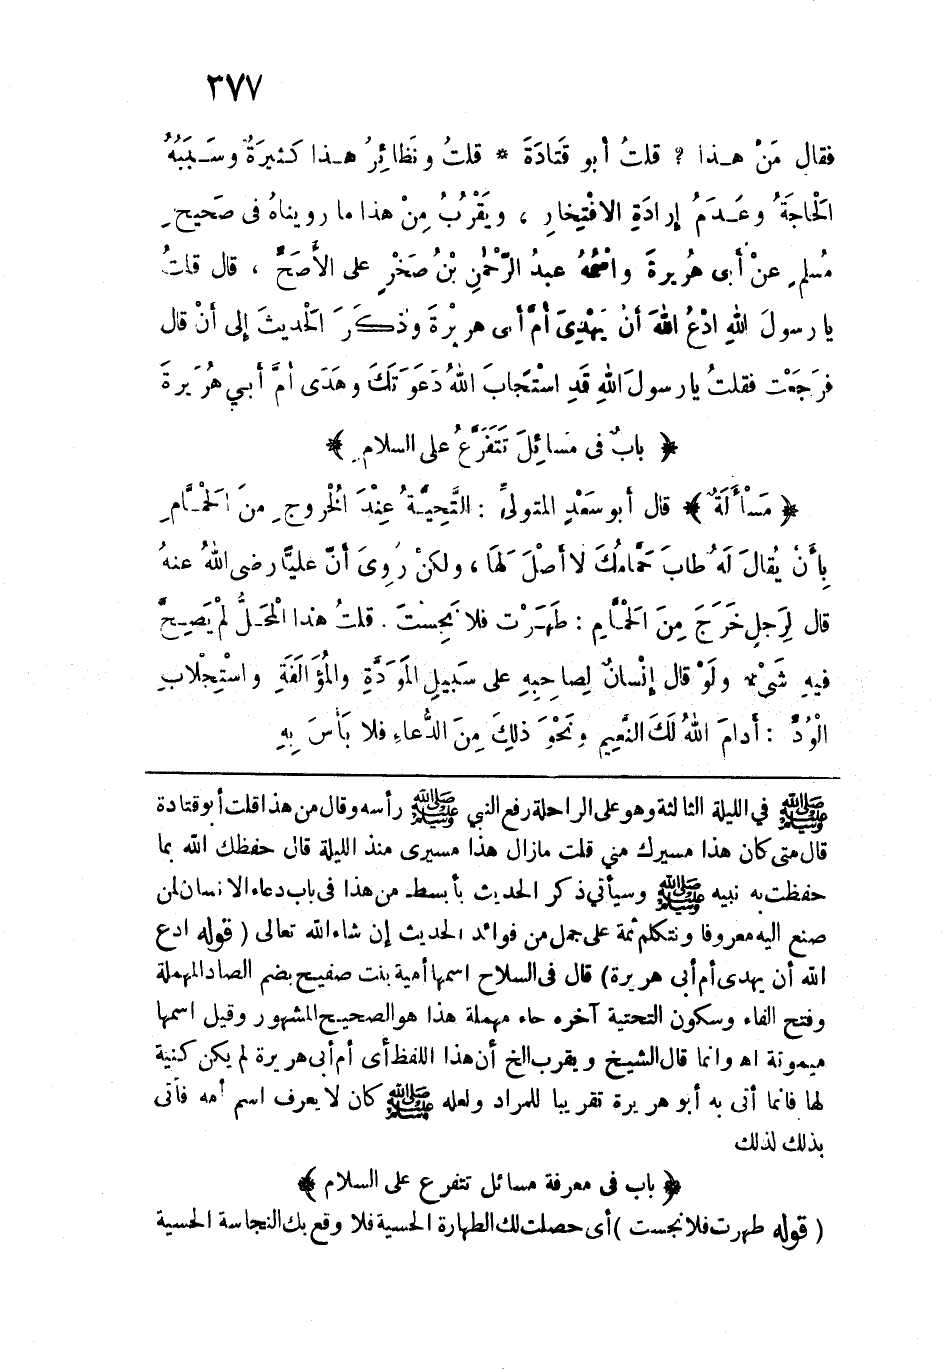 ٣٧٧
فقال مَنْ هـذا ? قلتُ أبو قَتَادَةَ * قلتُ ونَظائِرُ هـذا كَثيرَةٌ وسَـبَبُهُ
الْحَاجَةُ وعَـدَمُ إرادَةِ الافْتِخارِ ، ويَقْرُبُ مِنْ هذا ما رويناهُ فى صَحيحِ
مُسلمٍ عنْ أبى هُريرةَ واسْمُهُ عبدُ الرَّحْمٰنِ بْنُ صَخْرٍ على الأَصَحِّ ، قال قلتُ
يارسولَ اللهِ ادْعُ اللهَ أنْ يَهْدِىَ أُمَّ أبى هريْرةَ وذَكَرَ الْحديثَ إلى أنْ قال
فرَجَعْت فقلتُ يارسولَ اللهِ قَدِ اسْتَجَابَ اللهُ دَعَوَتَكَ وهَدَى أمَّ أبي هُرَيرةَ
﴿ بابٌ فى مَسائِلَ تَتَفَرَّعُ على السلامِ ﴾
﴿ مَسْأَلَةٌ ﴾ قال أبو سَعْدٍ المتولىِّ : التَّحِيَّـةُ عِنْدَ الْخُروجِ منَ الْحَمَّـامِ
بِأَنْ يُقالَ لَهُ طابَ حَمَّامُكَ لا أصْلَ لَهَا ، ولكنْ رُوِىَ أنّ عليًّا رضى اللهُ عنهُ
قال لِرَجلٍ خَرَجَ مِنَ الْحَمَّامِ : طَهَرْت فلا نَجِسْتَ . قلتُ هذا الْمَحَلُّ لمْ يَصِحَّ
فيهِ شَىْءٌ ولَوْ قال إنْسانٌ لِصاحِبِهِ على سَبيلِ الْمَوَدَّةِ والْمُؤَالَفَةِ واسْتِجْلابِ
الْوُدِّ : أدامَ اللهُ لَكَ النَّعيم ونَحْوَ ذلِكَ مِنَ الدُّعاءِ فلا بَأسَ بِهِ
ﷺ في الليلة الثالثة وهو على الراحلة رفع النبي ﷺ رأسه وقال من هذا قلت أبو قتادة
قال متى كان هذا مسيرك مني قلت مازال هذا مسيرى منذ الليلة قال حفظك الله بما
حفظت به نبيه ﷺ وسيأتي ذكر الحديث بأبسط من هذا فى باب دعاء الانسان لمن
صنع اليه معروفا ونتكلم ثمة على جمل من فوائد الحديث إن شاء الله تعالى ( قوله ادع
الله أن يهدى أم أبى هريرة) قال فى السلاح اسمها أمية بنت صفيح بضم الصاد المهملة
وفتح الفاء وسكون التحتية آخره حاء مهملة هذا هو الصحيح المشهور وقيل اسمها
ميمونة اه وانما قال الشيخ ويقرب الخ أن هذا اللفظ أى أم أبى هريرة لم يكن كنية
لها فانما أتى به أبو هريرة تقريبا للمراد ولعله ﷺ كان لا يعرف اسم أمه فأتى
بذلك لذلك
﴿ باب فى معرفة مسائل تتفرع على السلام ﴾
( قوله طهرت فلا نجست ) أى حصلت لك الطهارة الحسية فلا وقع بك النجاسة الحسية